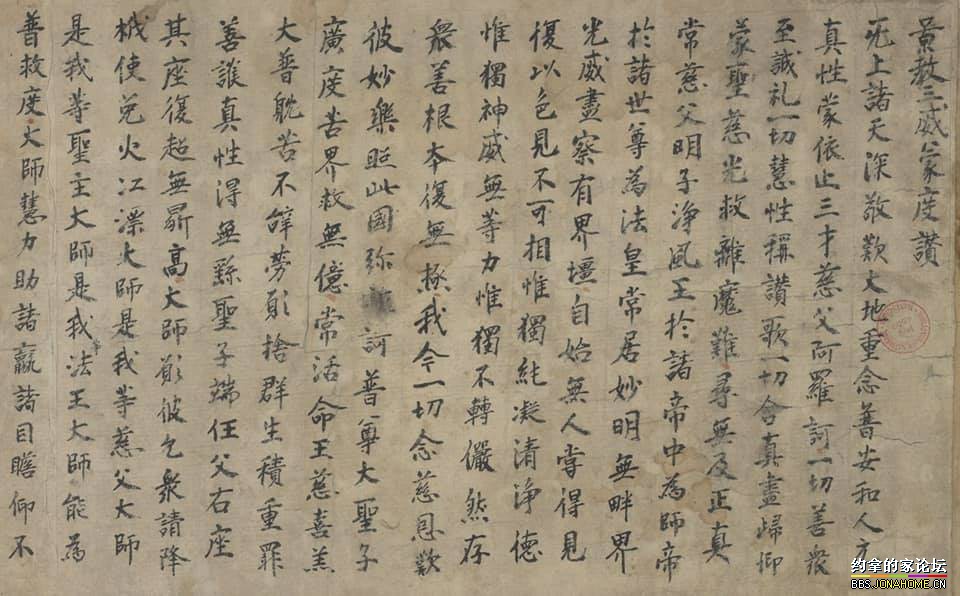 景教三威蒙度讚
无上諸天深敬歎大地重念普安和人元
真性蒙依止三才慈父阿羅訶一切善衆
至誠礼一切慧性稱讚歌一切含真盡歸仰
蒙聖慈光救離魔難尋無及正真
常慈父明子淨風王於諸帝中為師帝
於諸世尊為法皇常居妙明無畔界
光威盡察有界壃自始無人嘗得見
復以色見不可相惟獨純凝清淨德
惟獨神威無等力惟獨不轉儼然存
衆善根本復無極我今一切念慈恩歎
彼妙樂照此國弥訶普尊大聖子
廣度苦界救無億常活命王慈喜羔
大普耽苦不辝勞願捨群生積重罪
善護真性得無繇聖子端任父右座
其座復超無鼎高大師願彼乞衆請降
栰使免火江漂大師是我等慈父大師
是我等聖主大師是我法王大師能為
普救度大師慧力助諸羸諸目瞻仰不
约拿的家论坛
BBS.JONAHOME.CN